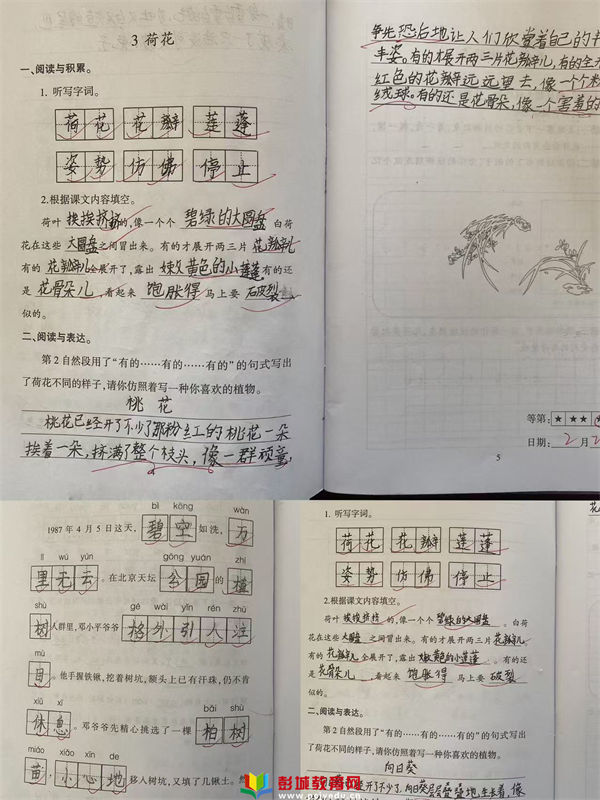 3 荷花
一、阅读与积累。
1. 听写字词。
荷花 花瓣 莲蓬
姿势 仿佛 停止
2.根据课文内容填空。
荷叶挨挨挤挤的,像一个个 碧绿的大圆盘 白荷
花在这些 大圆盘之间冒出来。有的才展开两三片 花瓣儿
有的 花瓣儿全展开了,露出 嫩黄色的小莲蓬有的还
是 花骨朵儿 ,看起来 饱胀得 马上要
似的。
二、阅读与表达。
第2自然段用了“有的……有的……有的”的句式写出
了荷花不同的样子,请你仿照着写一种你喜欢的植物。
桃花
桃花已经开了不少了那粉红的桃花一朵
挨着一朵,挤满了整个枝头,像一群顽童,
争先恐后地让人们欣赏着自己的
丰姿。有的才展开两三片花瓣儿,有的全
红色的花瓣远远望去,像一个个粉
绒球。有的还是花骨朵,像一个害羞的
等第:★★★
日期:2月2
5
bì kōng wàn
1987年4月5日这天, 碧空 如洗, 万
lǐ wú yún gōng yuán zhí
里无云 。在北京天坛 公园 的 植
shù gé wài yǐn rén zhù
树 人群里,邓小平爷爷 格外引人注
mù
目 。他手握铁锹,挖着树坑,额头上已有汗珠,仍不肯
xiū xi
休息 。邓爷爷先精心挑选了一棵
bǎi shù
柏树
miáo xiǎo xīn de
苗 , 小心地 移入树坑,又填了几锹土。
1. 听写字词。
荷花 花瓣 莲蓬
姿势 仿佛 停止
2.根据课文内容填空。
荷叶 挨挨挤挤 的,像一个个 碧绿的大圆盘 。白荷
花在这些 大圆盘 之间冒出来。有的才展开两三片 花瓣儿
有的 花瓣儿 全展开了,露出 嫩黄色的小莲蓬 。有的还
是 花骨朵儿 ,看起来 饱胀得 马上要 破裂
似的。
二、阅读与表达。
第2自然段用了“有的……有的……有的”的句式写出
了荷花不同的样子,请你仿照着写一种你喜欢的植物。
向日葵
彭城教育网